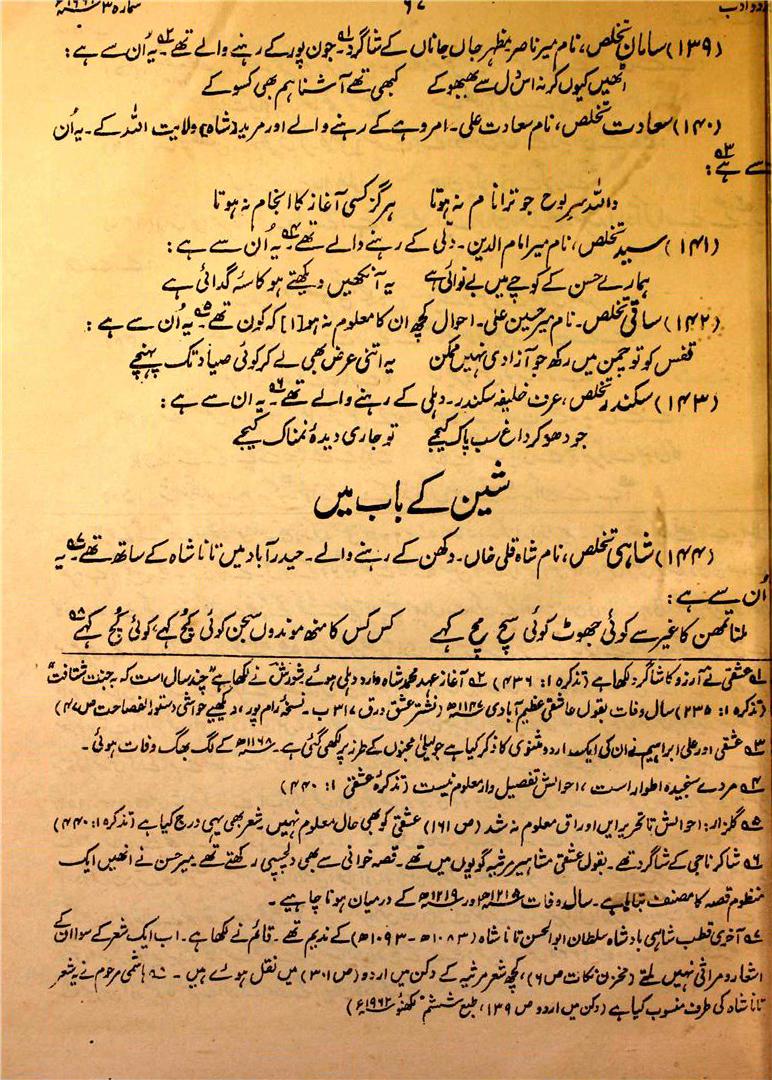 اردو ادب ۶۷ شمارہ ۳
(۱۳۹) سامان تخلص، نام میر ناصر، مظہر جان جاناں کے شاگرد۔۵۱ جون پور کے رہنے والے تھے۔۵۲ یہ اُن سے ہے:
انھیں کیوں کر نہ اس دل سے بھبھوکے کبھی تھے آشنا ہم بھی کسو کے
(۱۴۰) سعادت تخلص، نام سعادت علی۔ امروہے کے رہنے والے اور مرید (شاہ) ولایت اللہ کے۔ یہ اُن
سے ہے۵۳:
واللہ سر لوح جو ترا نام نہ ہوتا ہرگز کسی آغاز کا انجام نہ ہوتا
(۱۴۱) سید تخلص، نام میر امام الدین۔ دلّی کے رہنے والے تھے۔۵۴ یہ اُن سے ہے:
ہمارے حسن کے کوچے میں بے نوائی ہے یہ آنکھیں دیکھتے ہو کاسۂ گدائی ہے
(۱۴۲) ساقی تخلص۔ نام میر حسین علی۔ احوال کچھ ان کا معلوم نہ ہو [ا] کہ کون تھے۔۵۵ یہ اُن سے ہے:
قفس کو تو چمن میں رکھ جو آزادی نہیں ممکن یہ اتنی عرض بھی لے کر کوئی صیاد تک پہنچے
(۱۴۳) سکندر تخلص، عرف خلیفہ سکندر۔ دہلی کے رہنے والے تھے۔۵۶ یہ ان سے ہے:
جو دھو کر داغ سب پاک کیجے تو جاری دیدۂ نمناک کیجے
شین کے باب میں
(۱۴۴) شاہی تخلص، نام شاہ قلی خاں۔ دکھن کے رہنے والے۔ حیدرآباد میں تانا شاہ کے ساتھ تھے۔۵۷ یہ
اُن سے ہے:
ملنا تمھن کا غیر سے کوئی جھوٹ کوئی سچ مچ کہے کس کس کا منھ موندوں سجن کوئی کچھ کہے، کوئی کچ کہے۵۸
۵۱ عشقی نے آرزو کا شاگرد لکھا ہے (تذکرہ ۱: ۴۳۶) ۵۲ آغاز عہد محمد شاہ وارد دہلی ہوئے۔ شورش نے لکھا ہے "چند سال است کہ بہ جنت شتافت"
(تذکرہ ۱: ۲۳۵) سال وفات بقول عاشقی عظیم آبادی ۱۱۴۷ھ (نشتر عشق ورق ۳۱۷ ب۔ نسخۂ رام پور، دیکھیے حواشی دستور الفصاحت ص ۴۷)
۵۳ عشقی اور علی ابراہیم نے ان کی ایک اردو مثنوی کا ذکر کیا ہے جو لیلیٰ مجنوں کے طرز پر لکھی گئی ہے۔ ۱۱۶۸ھ کے لگ بھگ وفات ہوئی۔
۵۴ مردے سنجیدہ اطوار است، احوالش تفصیل وار معلوم نیست (تذکرۂ عشقی ۱: ۴۴۰)
۵۵ گلزار: احوالش تا تحریر ایں اوراق معلوم نہ شد (ص ۱۶۱) عشقی کو بھی حال معلوم نہیں۔ شعر بھی یہی درج کیا ہے (تذکرہ ۱: ۴۴۰)
۵۶ شاکر ناجی کے شاگرد تھے۔ بقول عشقی مشاہیر مرثیہ گویوں میں تھے۔ قصہ خوانی سے بھی دلچسپی رکھتے تھے۔ میر حسن نے انھیں ایک
منظوم قصہ کا مصنف بتایا ہے۔ سال وفات ۱۲۱۵ھ اور ۱۲۱۹ھ کے درمیان ہونا چاہیے۔
۵۷ آخری قطب شاہی بادشاہ سلطان ابوالحسن تانا شاہ (۱۰۸۳ھ – ۱۰۹۳ھ) کے ندیم تھے۔ قائم نے لکھا ہے۔ اب ایک شعر کے سوا ان کے
اشعار و مراثی نہیں ملتے (مخزن نکات ص ۶)، کچھ شعر مرثیہ کے دکن میں اردو (ص ۳۰۱) میں نقل ہوئے ہیں۔ ۵۸ ہاشمی مرحوم نے یہ شعر
تانا شاہ کی طرف منسوب کیا ہے (دکن میں اردو ص ۱۳۹، طبع ششم لکھنؤ ۱۹۶۲ء)